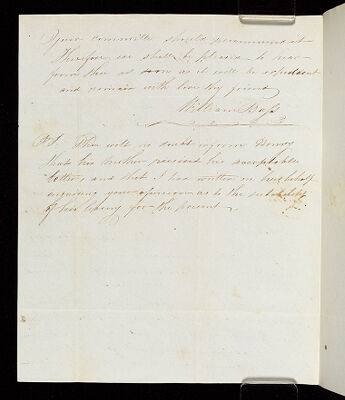 Your committee should recommend it
Therefore we shall be pleased to hear
from thee as soon as it will be expedient
and remain with love thy friend
William Bass
P.S. Thee will no doubt inform Henry
that his brother received his acceptable
letter, and that I has written on his behalf
enquiring your opinion as to the suitability
of his leaving for the present